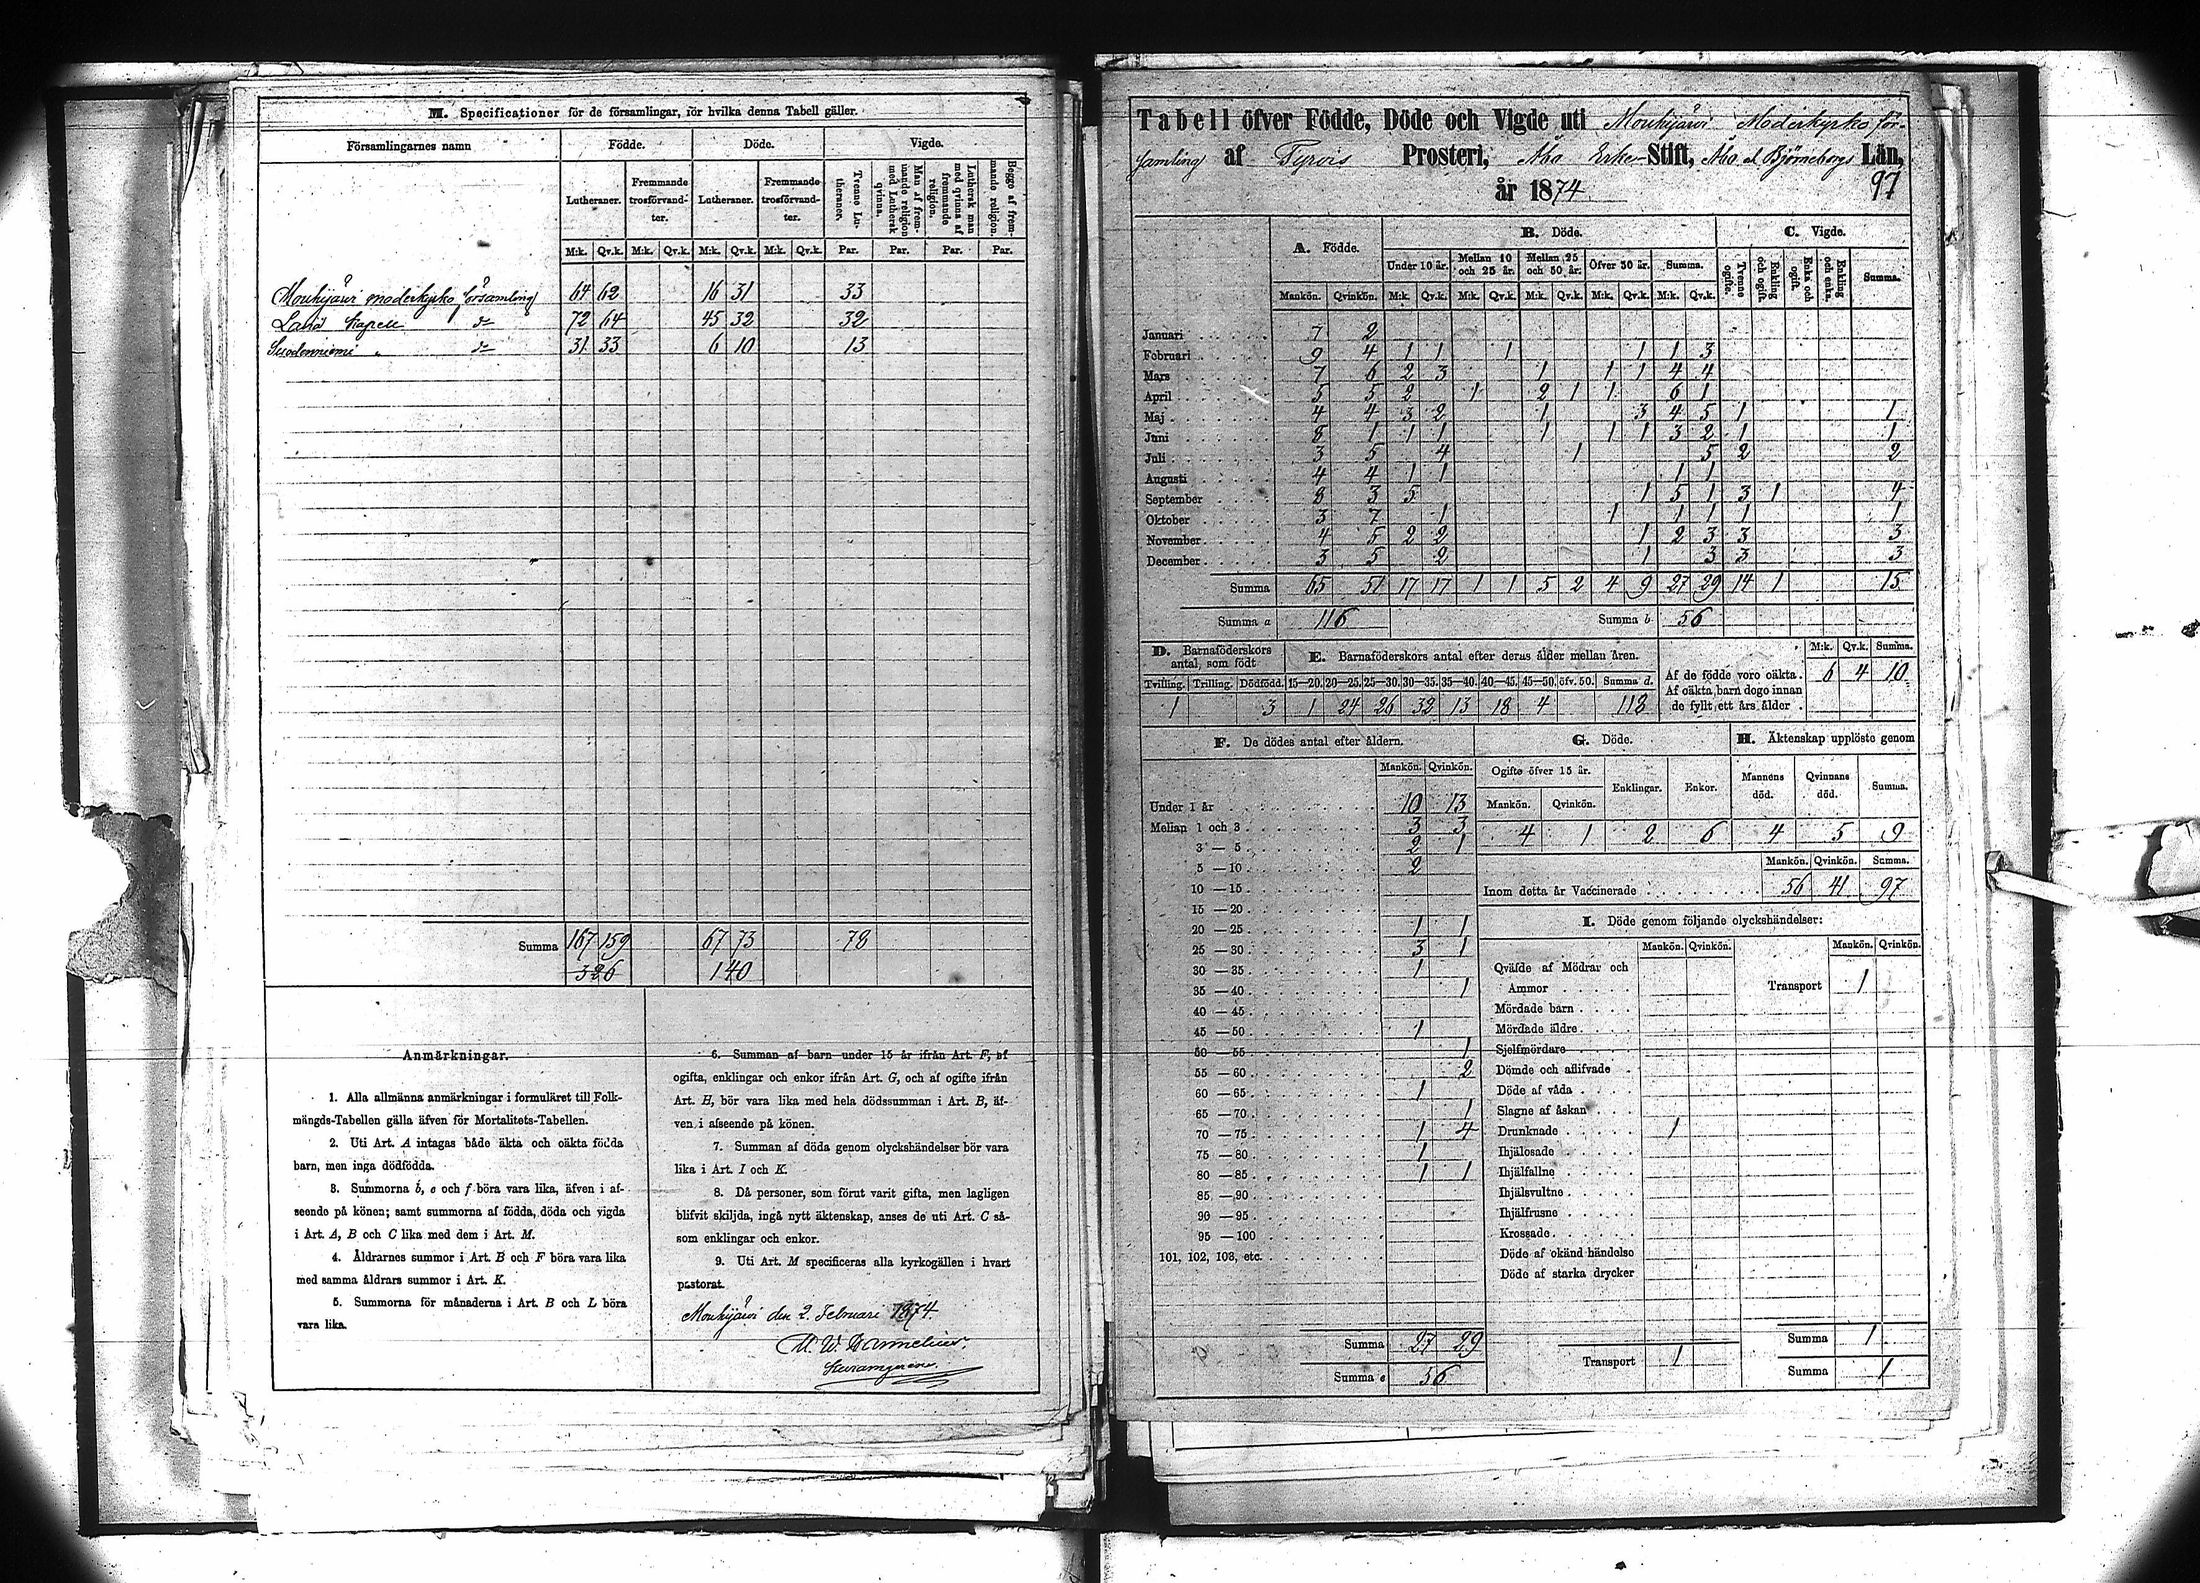 M. Specificationer för de församlingar, för hvilka denna Tabell gäller.
Församlingarnes namn Födde. Döde. Vigde.
Lutheraner. Fremmande trosförvandter. Lutheraner. Fremmande trosförvandter. Tvenne Lutheraner. Man af fremmande religion med Luthersk qvinna. Luthersk man med qvinna af fremmande religion. Begge af fremmande religion.
M:k. Qv.k. M:k. Qv.k. M:k. Qv.k. M:k. Qv.k. Par. Par. Par. Par.
Mouhijärvi moderkyrko församling 64 62 16 31 33
Lavia Kapell d:o 72 64 45 32 32
Suodenniemi " d:o 31 33 6 10 13
Summa 167 159 67 73 78
326 140
Anmärkningar.
1. Alla allmänna anmärkningar i formuläret till Folk-
mängds-Tabellen gälla äfven för Mortalitets-Tabellen.
2. Uti Art. A intagas både äkta och oäkta födda
barn, men inga dödfödda.
3. Summorna b, e och f böra vara lika, äfven i af-
seende på könen; samt summorna af födda, döda och vigda
i Art. A, B och C lika med dem i Art. M.
4. Åldrarnes summor i Art. B och F böra vara lika
med samma åldrars summor i Art. K.
5. Summorna för månaderna i Art. B och L böra
vara lika.
6. Summan af barn under 15 år ifrån Art. F, af
ogifta, enklingar och enkor ifrån Art. G, och af ogifte ifrån
Art. H, bör vara lika med hela dödssumman i Art. B, äf-
ven i afseende på könen.
7. Summan af döda genom olyckshändelser bör vara
lika i Art. I och K.
8. Då personer, som förut varit gifta, men lagligen
blifvit skiljda, ingå nytt äktenskap, anses de uti Art. C så-
som enklingar och enkor.
9. Uti Art. M specificeras alla kyrkogällen i hvart
pastorat.
Mouhijärvi den 2 Februari 1874.
Tabell öfver Födde, Döde och Vigde uti Mouhijärvi Moderkyrko för-
samling af Tyrvis Prosteri, Åbo Erke-Stift, Åbo o. Björneborgs Län,
år 1874 97
A. Födde. B. Döde. C. Vigde.
Under 10 år. Mellan 10 och 25 år. Mellan 25 och 50 år. Öfver 50 år. Summa. Tvenne ogifte. Enkling och ogift. Enka och ogift. Enkling och enka. Summa.
Mankön. Qvinkön. M:k. Qv.k. M:k. Qv.k. M:k. Qv.k. M:k. Qv.k. M:k. Qv.k.
Januari 7 2
Februari 9 4 1 1 1 1 1 3
Mars 7 6 2 3 1 1 1 4 4
April 5 5 2 1 2 1 1 6 1
Maj 4 4 3 2 1 3 4 5 1 1
Juni 8 1 1 1 1 1 1 3 2 1 1
Juli 3 5 4 1 5 2 2
Augusti 4 4 1 1 1 1
September 8 3 5 1 5 1 3 1 4
Oktober 3 7 1 1 1 1 1 1
November 4 5 2 2 1 2 3 3 3
December 3 5 2 1 3 3 3
Summa 65 51 17 17 1 1 5 2 4 9 27 29 14 1 15
Summa a 116 Summa b 56
D. Barnaföderskors antal, som födt
Tvilling. Trilling. Dödfödd.
1 3
E. Barnaföderskors antal efter deras ålder mellan åren.
15—20. 20—25. 25—30. 30—35. 35—40. 40—45. 45—50. öfv. 50. Summa d.
1 24 26 32 13 18 4 118
M:k. Qv.k. Summa.
Af de födde voro oäkta. 6 4 10
Af oäkta barn dogo innan
de fyllt ett års ålder
F. De dödes antal efter åldern.
Mankön. Qvinkön.
Under 1 år 10 13
Mellan 1 och 3 3 3
3 — 5 2 1
5 — 10 2
10 — 15
15 — 20
20 — 25 1 1
25 — 30 3 1
30 — 35 1
35 — 40 1
40 — 45
45 — 50 1
50 — 55 1
55 — 60 2
60 — 65 1
65 — 70 1
70 — 75 1 4
75 — 80 1
80 — 85 1 1
85 — 90
90 — 95
95 — 100
101, 102, 103, etc.
Summa 27 29
Summa e 56
G. Döde.
Ogifte öfver 15 år. Enklingar. Enkor.
Mankön. Qvinkön.
4 1 2 6
H. Äktenskap upplöste genom
Mannens död. Qvinnans död. Summa.
4 5 9
Mankön. Qvinkön. Summa.
Inom detta år Vaccinerade 56 41 97
I. Döde genom följande olyckshändelser:
Mankön. Qvinkön. Mankön. Qvinkön.
Qväfde af Mödrar och
Ammor
Mördade barn
Mördade äldre
Sjelfmördare
Dömde och aflifvade
Döde af våda
Slagne af åskan
Drunknade 1
Ihjälosade
Ihjälfallne
Ihjälsvultne
Ihjälfrusne
Krossade
Döde af okänd händelse
Döde af starka drycker
Transport 1
Transport 1
Summa 1
Summa 1